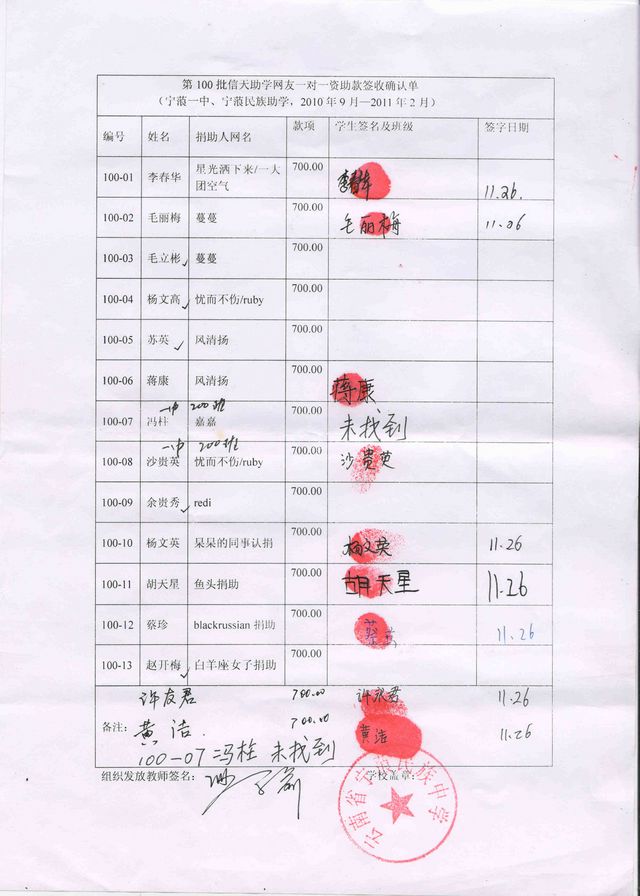 第100批信天助学网友一对一资助款签收确认单
（宁蒗一中、宁蒗民族助学，2010年9月—2011年2月）
编号 姓名 捐助人网名 款项 学生签名及班级 签字日期
100-01 李春华 星光洒下来/一大团空气 700.00 李春华 11.26.
100-02 毛丽梅 蔓蔓 700.00 毛丽梅 11.26
100-03 毛立彬 ✓ 蔓蔓 700.00
100-04 杨文高 ✓ 忧而不伤/ruby 700.00
100-05 苏英 ✓ 风清扬 700.00
100-06 蒋康 风清扬 700.00 蒋康
一中 200班
100-07 冯柱 嘉嘉 700.00 未找到
一中 200班
100-08 沙贵英 忧而不伤/ruby 700.00 沙贵英
100-09 余贵秀 ✓ redi 700.00
100-10 杨文英 杲杲的同事认捐 700.00 杨文英 11.26
100-11 胡天星 鱼头捐助 700.00 胡天星 11.26
100-12 蔡珍 blackrussian捐助 700.00 蔡 11.26
100-13 赵开梅 ✓ 白羊座女子捐助 700.00
许友君 700.00 许友君 11.26
备注： 黄洁. 700.00 黄洁 11.26
100-07 冯柱 未找到
组织发放教师签名： 学校盖章：
云南省宁蒗民族中学